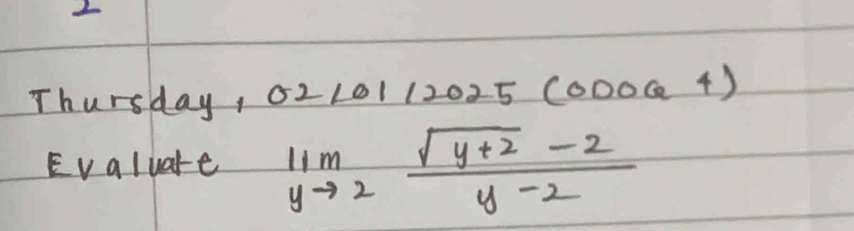 2
Thursday, 02/01/2025 (ODOQ 4)
Evaluate lim y→2 (√(y+2) - 2)/(y - 2)